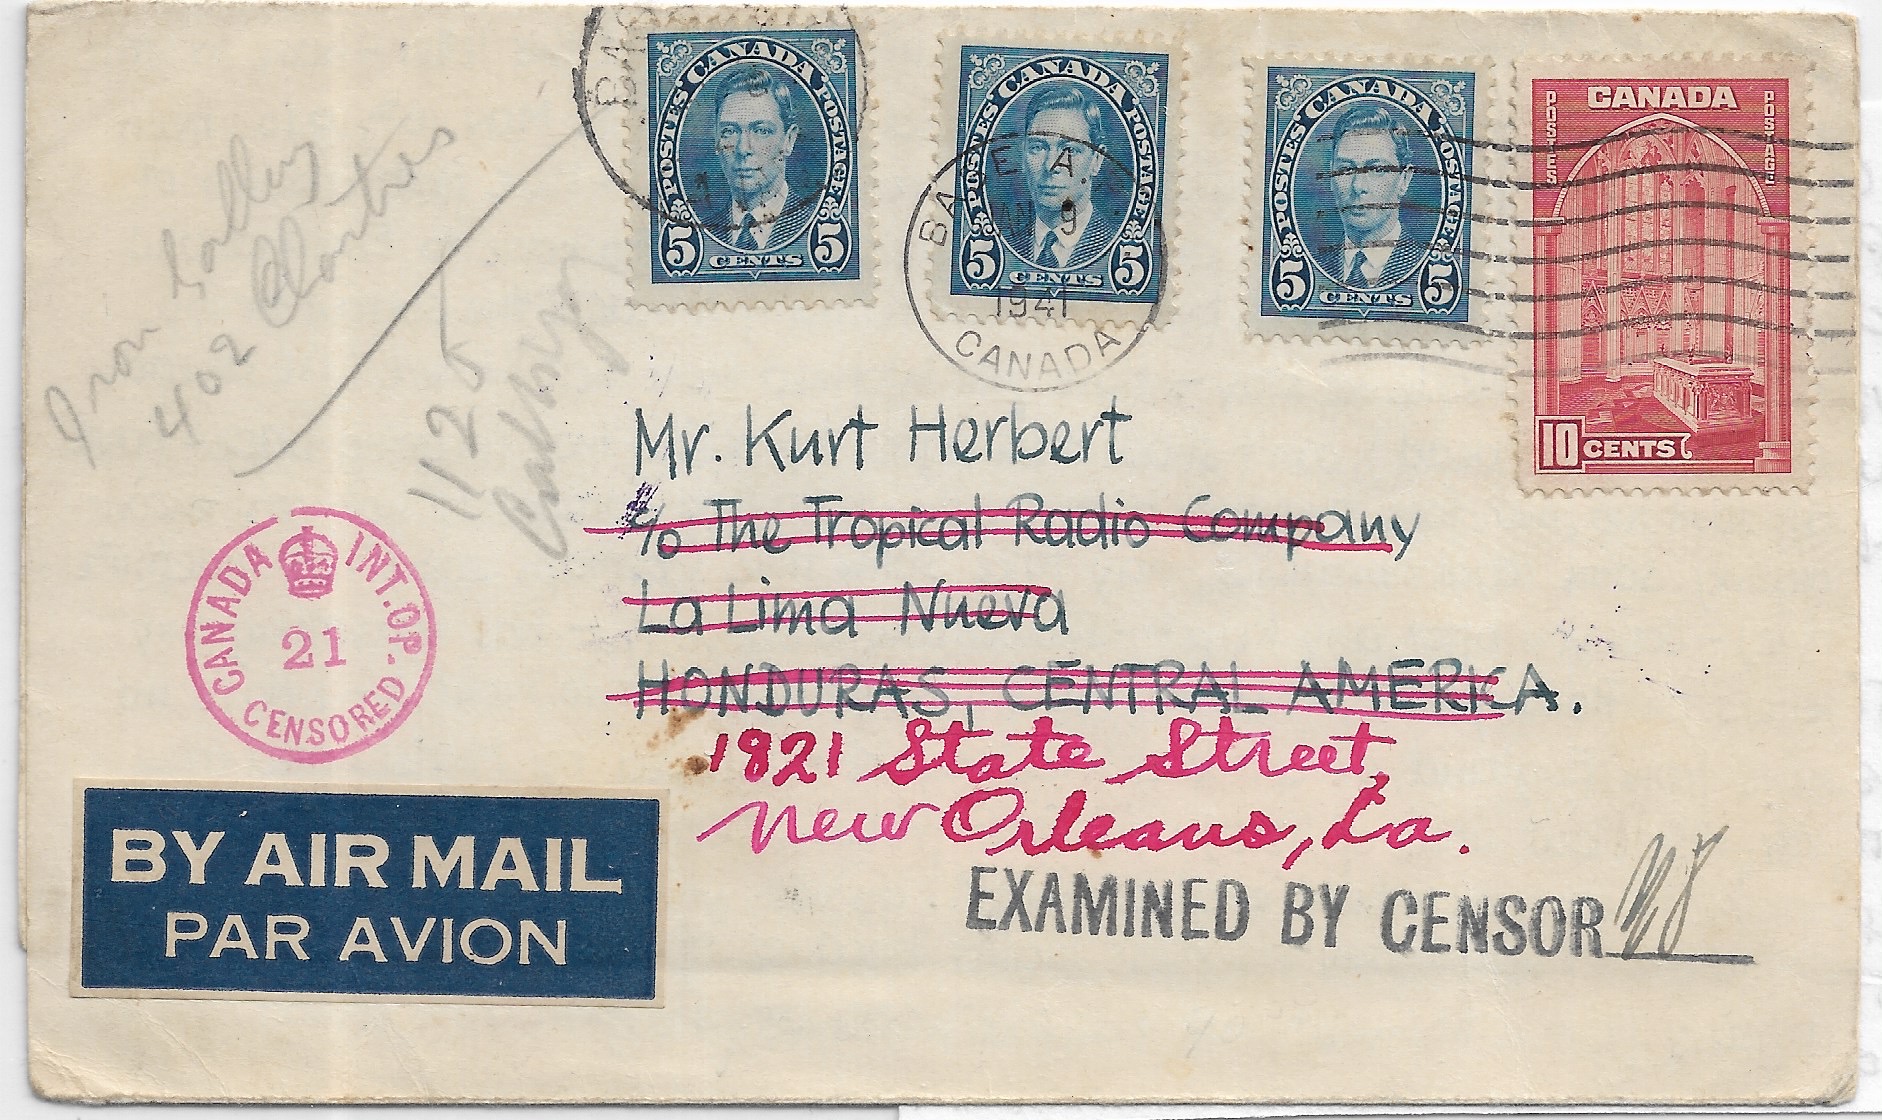 CANADA
POSTES POSTAGE
5 CENTS 5
CANADA
POSTES POSTAGE
5 CENTS 5
CANADA
POSTES POSTAGE
5 CENTS 5
CANADA
POSTES POSTAGE
10 CENTS
BAS
BASE A.
JAN 9
1941
CANADA
402
1125
Mr. Kurt Herbert
c/o The Tropical Radio Company
La Lima Nueva
HONDURAS, CENTRAL AMERICA.
1821 State Street,
New Orleans, La.
CANADA INT. OP.
21
CENSORED
BY AIR MAIL
PAR AVION
EXAMINED BY CENSOR